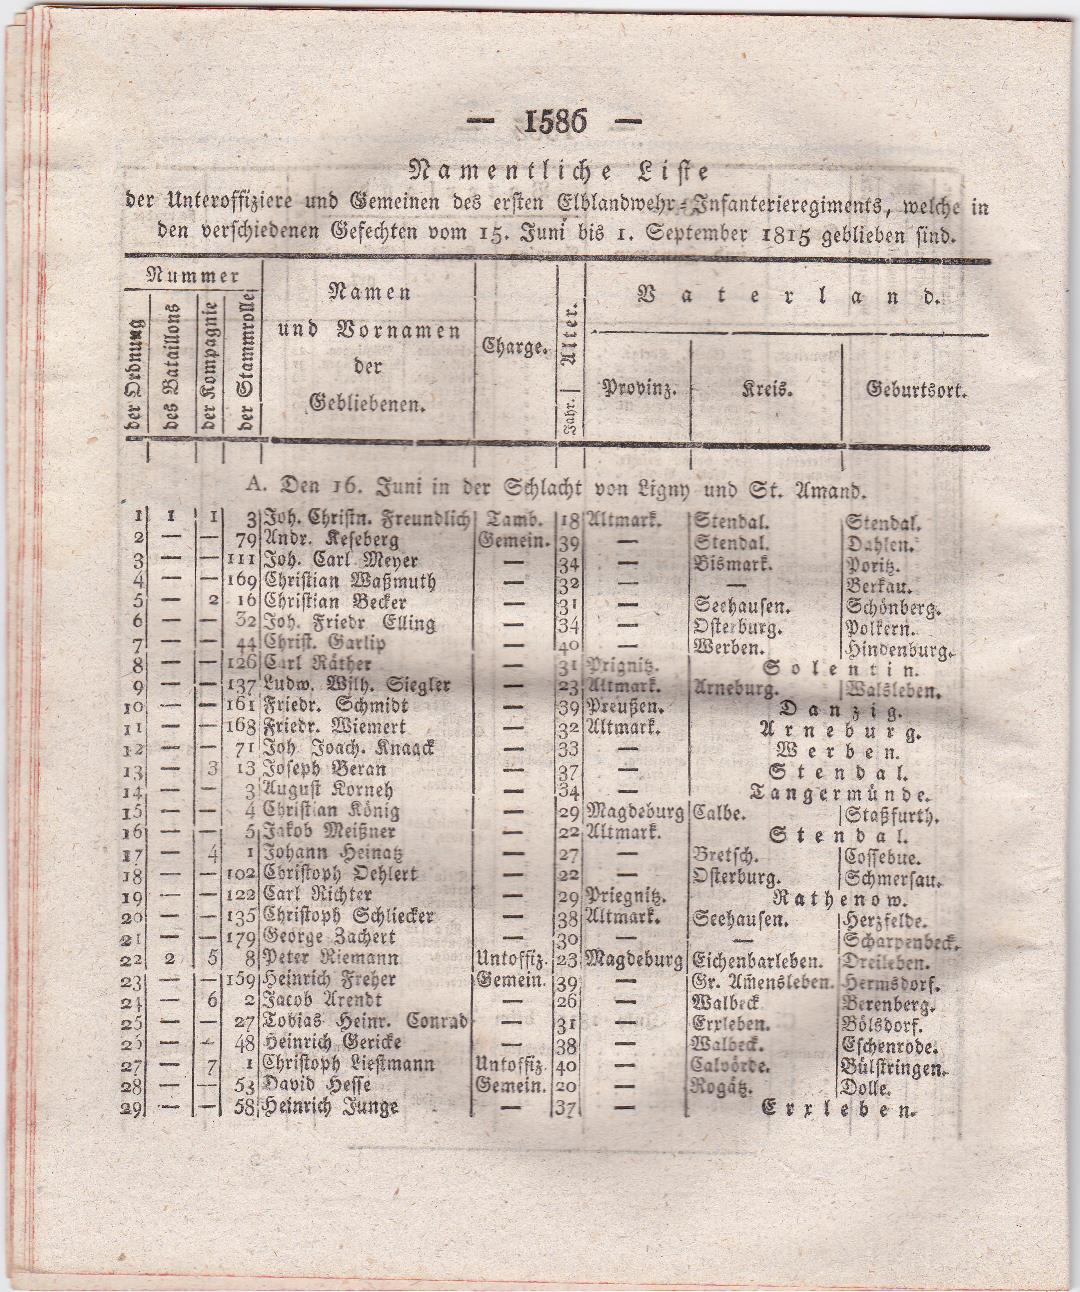 — 1586 —
Namentliche Liste
der Unteroffiziere und Gemeinen des ersten Elblandwehr-Infanterieregiments, welche in
den verschiedenen Gefechten vom 15. Juni bis 1. September 1815 geblieben sind.
Nummer
der Ordnung
des Bataillons
der Kompagnie
der Stammrolle
Namen
und Vornamen
der
Gebliebenen.
Charge.
Jahr. | Alter.
Vaterland.
Provinz.
Kreis.
Geburtsort.
A. Den 16. Juni in der Schlacht von Ligny und St. Amand.
1 1 1 3 Joh. Christn. Freundlich Tamb. 18 Altmark. Stendal. Stendal.
2 — — 79 Andr. Keseberg Gemein. 39 — Stendal. Dahlen.
3 — — 111 Joh. Carl Meyer — 34 — Bismark. Poritz.
4 — — 169 Christian Waßmuth — 32 — — Berkau.
5 — 2 16 Christian Becker — 31 — Seehausen. Schönberg.
6 — — 32 Joh. Friedr Elling — 34 — Osterburg. Polkern.
7 — — 44 Christ. Garlip — 40 — Werben. Hindenburg.
8 — — 126 Carl Räther — 31 Prignitz. Solentin.
9 — — 137 Ludw. Wilh. Siegler — 23 Altmark. Arneburg. Walsleben.
10 — — 161 Friedr. Schmidt — 39 Preußen. Danzig.
11 — — 168 Friedr. Wiemert — 32 Altmark. Arneburg.
12 — — 71 Joh Joach. Knaack — 33 — Werben.
13 — 3 13 Joseph Beran — 37 — Stendal.
14 — — 3 August Korneh — 34 — Tangermünde.
15 — — 4 Christian König — 29 Magdeburg Calbe. Staßfurth.
16 — — 5 Jakob Meißner — 22 Altmark. Stendal.
17 — 4 1 Johann Heinatz — 27 — Bretsch. Cossebue.
18 — — 102 Christoph Oehlert — 22 — Osterburg. Schmersau.
19 — — 122 Carl Richter — 29 Priegnitz. Rathenow.
20 — — 135 Christoph Schliecker — 38 Altmark. Seehausen. Herzfelde.
21 — — 179 George Zachert — 30 — — Scharpenbeck.
22 2 5 8 Peter Riemann Untoffiz. 23 Magdeburg Eichenbarleben. Dreileben.
23 — — 159 Heinrich Freyer Gemein. 39 — Gr. Am̃ensleben. Hermsdorf.
24 — 6 2 Jacob Arendt — 26 — Walbeck Berenberg.
25 — — 27 Tobias Heinr. Conrad — 31 — Erxleben. Bölsdorf.
26 — — 48 Heinrich Gericke — 38 — Walbeck. Eschenrode.
27 — 7 1 Christoph Liestmann Untoffiz. 40 — Calvörde. Bülstringen.
28 — — 53 David Hesse Gemein. 20 — Rogätz. Dolle.
29 — — 58 Heinrich Junge — 37 — Erxleben.